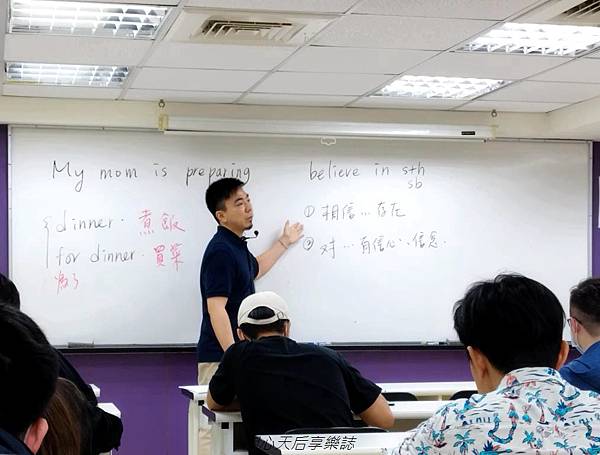 My mom is preparing
dinner. 煮飯
for dinner. 買菜
為了
believe in sth
sb
① 相信…存在
② 对…有信心、信念.
心天后享樂誌